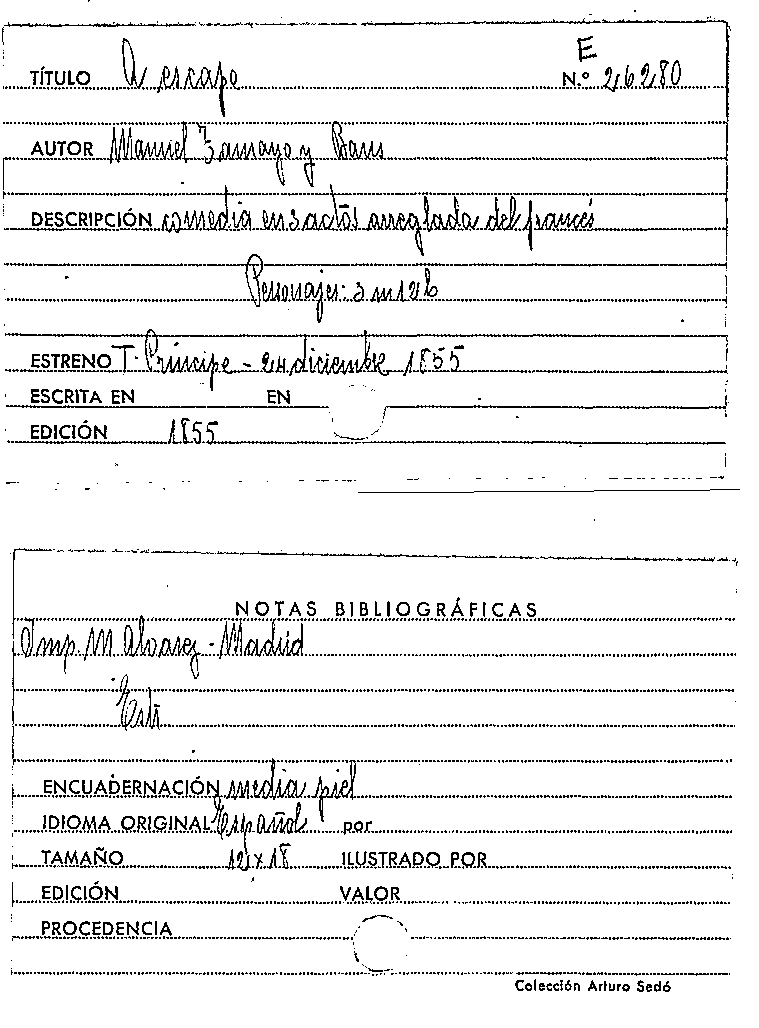 E
TÍTULO A escape N.º 26280
AUTOR Manuel Tamayo y Baus
DESCRIPCIÓN comedia en 3 actos arreglada del francés
Personajes: 3 m
ESTRENO T. Príncipe - 24 diciembre 1855
ESCRITA EN EN
EDICIÓN 1855
NOTAS BIBLIOGRÁFICAS
Imp. M Alvarez - Madrid
ENCUADERNACIÓN media piel
IDIOMA ORIGINAL Español por
TAMAÑO 12 x 18 ILUSTRADO POR
EDICIÓN VALOR
PROCEDENCIA
Colección Arturo Sedó